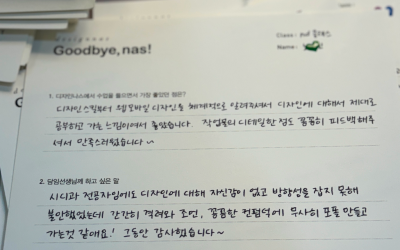 designer
Goodbye, nas!
Class :
Name :
1. 디자인나스에서 수업을 들으면서 가장 좋았던 점은?
디자인스킬부터 웹모바일 디자인을 체계적으로 알려주셔서 디자인에 대해서 제대로
공부하고 가는 느낌이어서 좋았습니다. 작업물의 디테일한 점도 꼼꼼히 피드백해주
셔서 만족스러웠습니다~
2. 담임선생님께 하고 싶은 말
시디과 전공자임에도 디자인에 대해 자신감이 없고 방향성을 잡지 못해
불안했었는데 간간히 격려와 조언, 꼼꼼한 컨펌덕에 무사히 포폴 만들고
가는것 같아요! 그동안 감사했습니다~